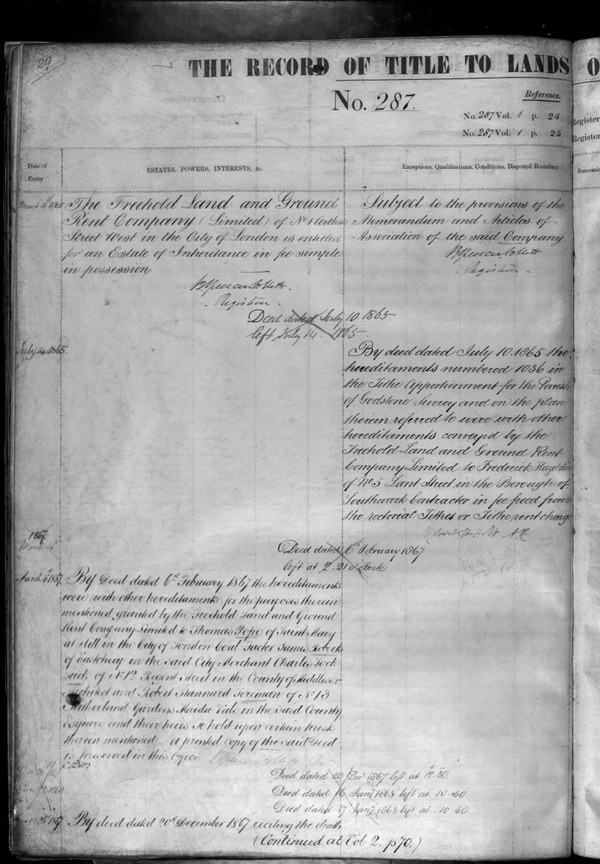 29
THE RECORD OF TITLE TO LANDS O
No. 287.
Reference.
No. 287 Vol. 1 p. 24
No. 287 Vol. 1 p. 25
Register
Register
Date of
Entry
ESTATES, POWERS, INTERESTS, &c.
Exceptions, Qualifications, Conditions, Disputed Boundary
1865
The Freehold Land and Ground
Rent Company (Limited) of No 4
Street West in the City of London is entitled
for an Estate of Inheritance in fee simple
in possession
Registrar
Subject to the provisions of the
Memorandum and Articles of
Association of the said Company
Registrar
Deed dated July 10. 1865
left July 14. 1865.
July 1865
By deed dated July 10. 1865 the
hereditaments numbered 1036 in
the Tithe Apportionment for the Parish
of Godstone Surrey and on the plan
therein referred to were with other
hereditaments conveyed by the
Freehold Land and Ground Rent
Company Limited to Frederick
of No 5 Lant Street in the Borough of
Southwark Contractor in fee freed from
the rectorial Tithes or Tithe rent charge
1867
Deed dated 6 February 1867
left at 2. o'clock
March 1867
By Deed dated 6th February 1867 the hereditaments
were with other hereditaments for the purposes therein
mentioned granted by the Freehold Land and Ground
Rent Company Limited to Thomas Pope of Saint Mary
at Hill in the City of London Coal Factor James
of Eastcheap in the said City Merchant Charles
of No 12 Regent Street in the County of Middlesex
and Robert Stannard Foreman of No 13
Sutherland Gardens Maida Vale in the said County
Esquire and their heirs to hold upon certain trusts
therein mentioned. A printed copy of the said Deed
is preserved in this Office
Deed dated 20 Decr 1867 left at 12.30
Deed dated 16 Jany 1868 left at 10.40
Deed dated 17 Jany 1868 left at 10.40
By deed dated 20th December 1867 reciting the death
(Continued at Vol 2. p 70.)